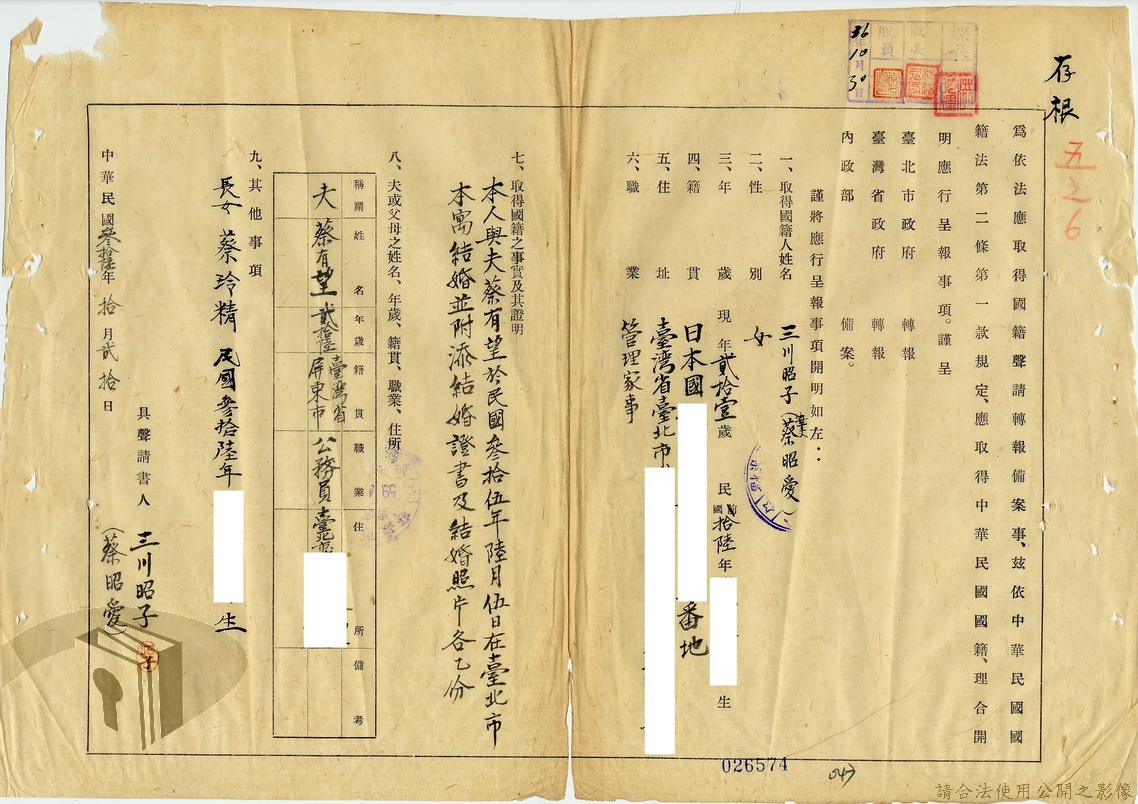 存根
五之6
課長
股長
股員
36年10月30日
為依法應取得國籍聲請轉報備案事、茲依中華民國國
籍法第二條第一款規定、應取得中華民國國籍、理合開
明應行呈報事項。謹呈
臺北市政府 轉報
臺灣省政府 轉報
內政部 備案。
謹將應行呈報事項開明如左：
一、取得國籍人姓名 三川昭子(蔡昭愛)
二、性別 女
三、年歲 現年貳拾壹歲 民國前拾陸年 生
四、籍貫 日本國 番地
五、住址 臺灣省臺北市
六、職業 管理家事
七、取得國籍之事實及其證明
本人與夫蔡有望於民國叄拾伍年陸月伍日在臺北市
本寓結婚並附添結婚證書及結婚照片各乙份
八、夫或父母之姓名、年歲、籍貫、職業、住所
稱謂 姓名 年歲 籍貫 職業 住所 備考
夫 蔡有望 貳拾 臺灣省屏東市 公務員 臺北
九、其他事項
長女 蔡玲精 民國叄拾陸年 生
具聲請書人 三川昭子
(蔡昭愛)
中華民國叄拾陸年拾月貳拾日
026574
請合法使用公開之影像